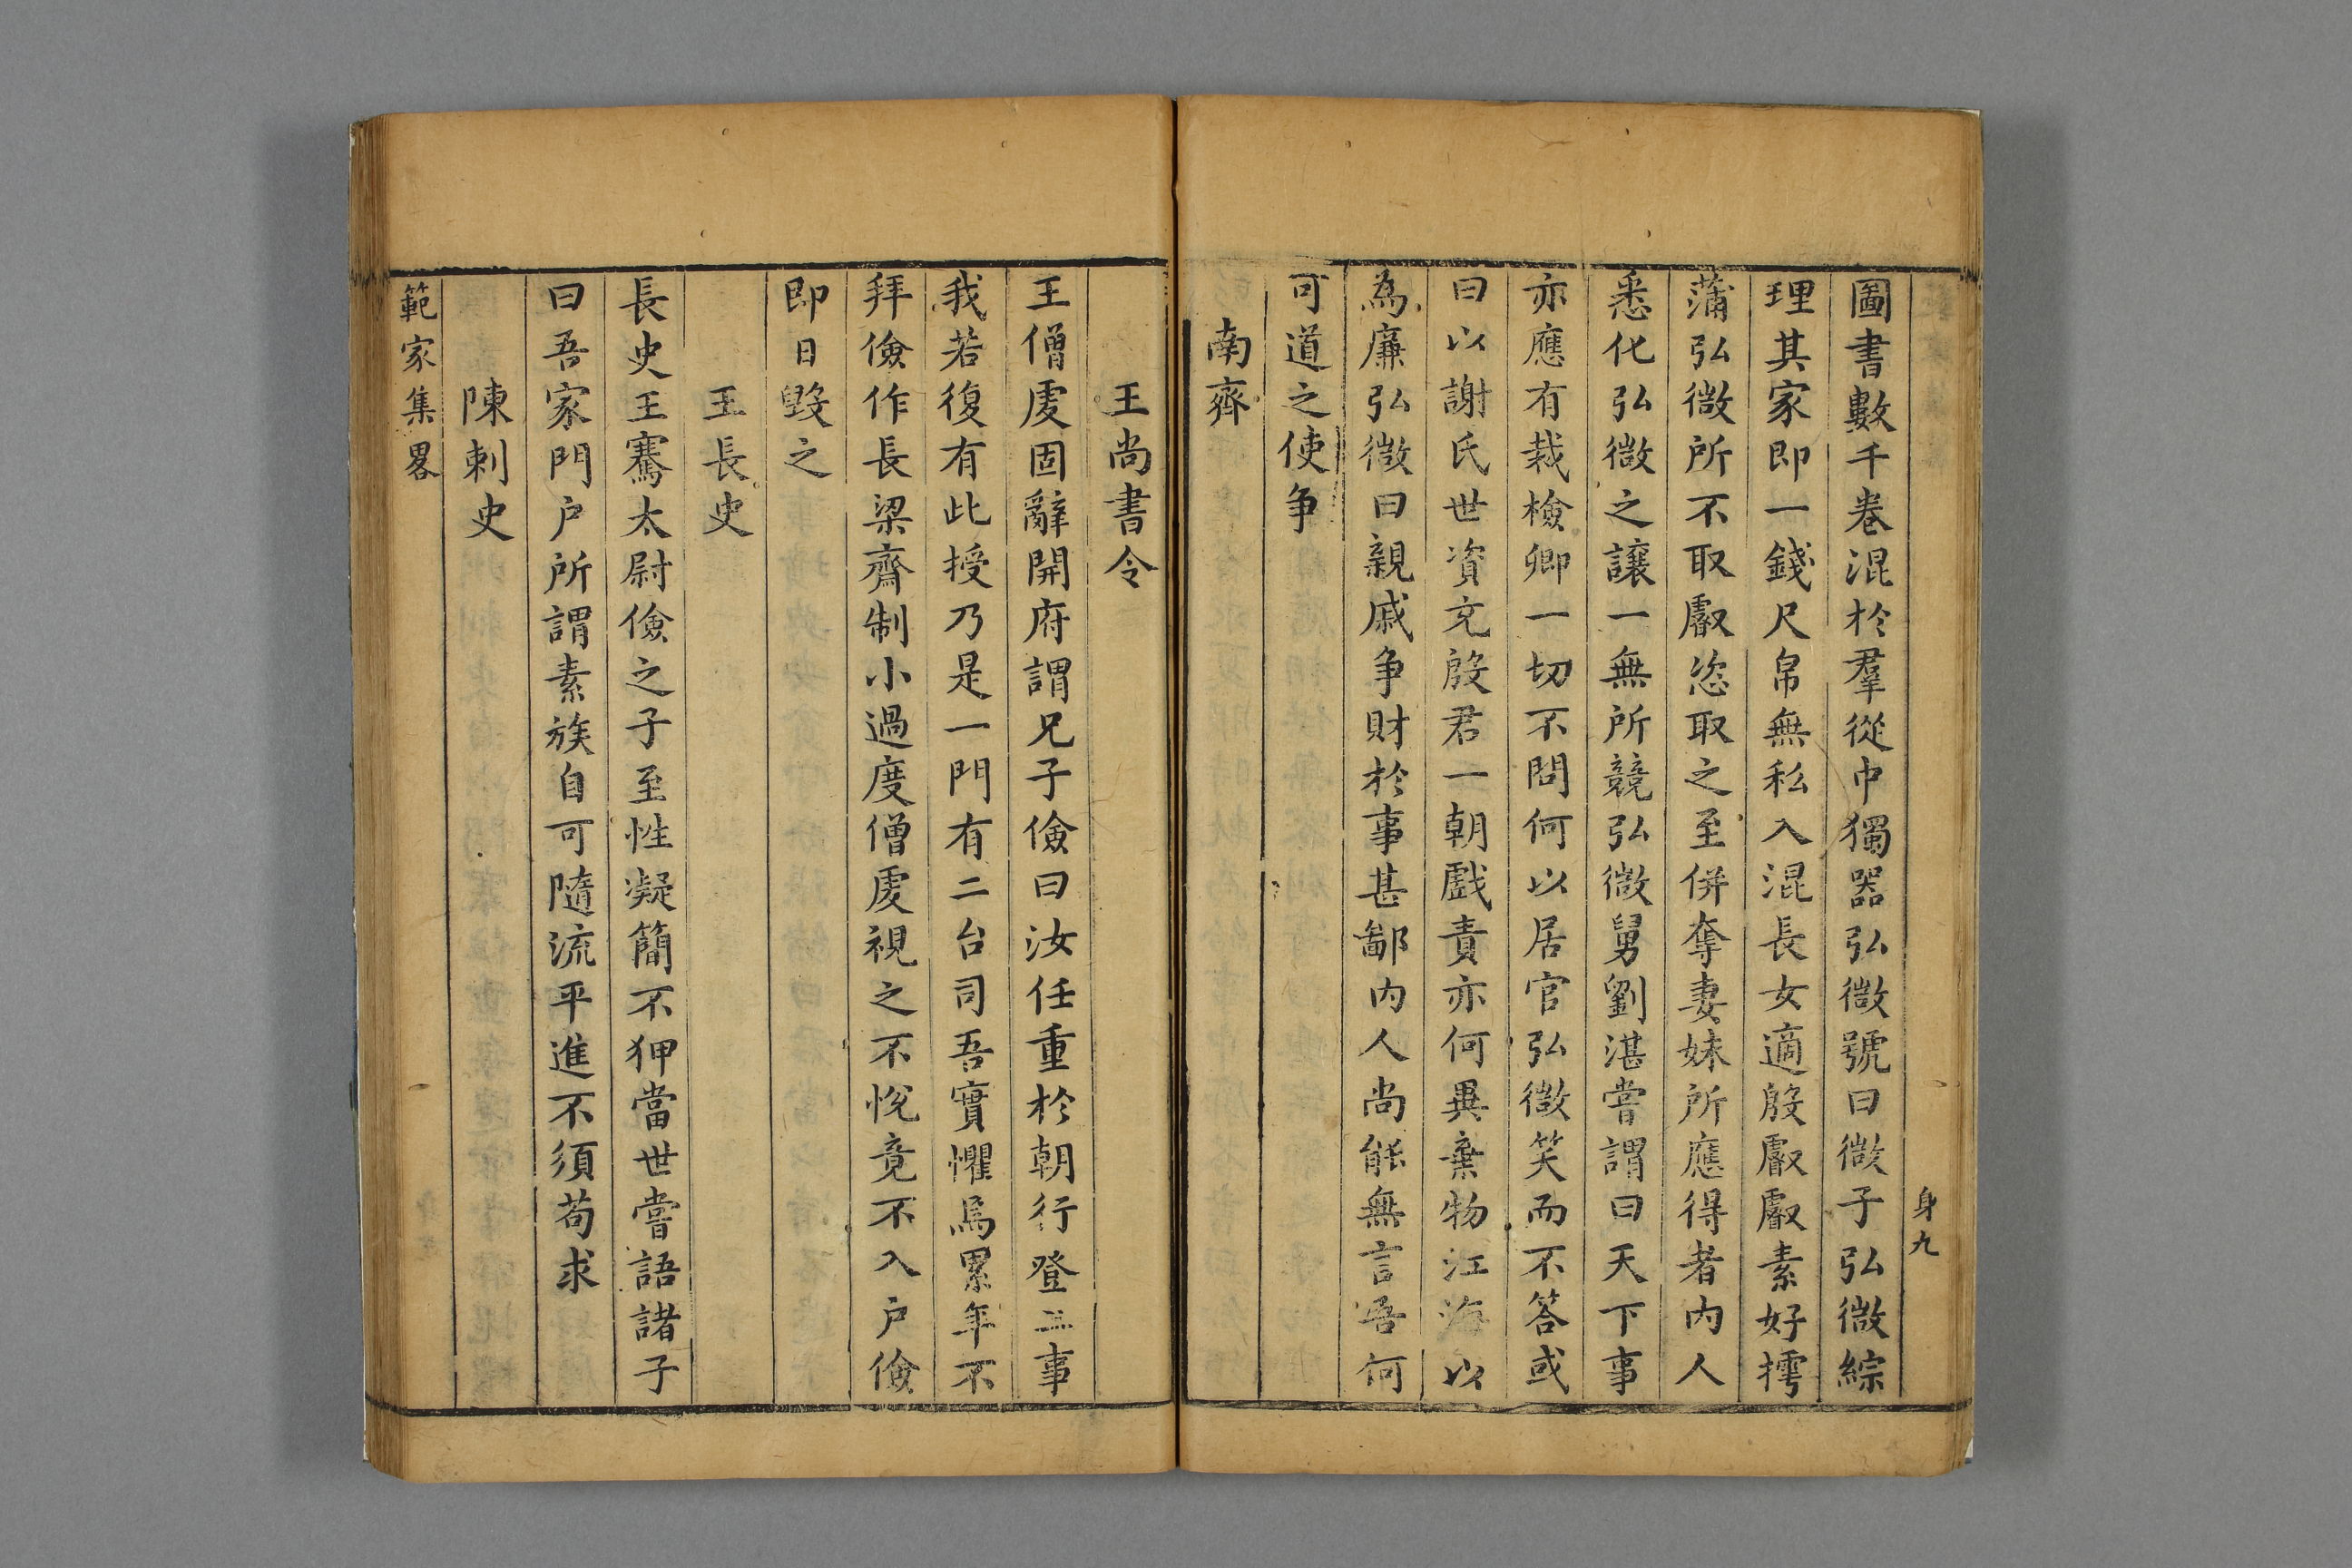 身九
圖書數千卷混於羣從中獨器弘微號曰微子弘微綜
理其家即一錢尺帛無私入混長女適殷叡叡素好摴
蒲弘微所不取叡恣取之至併奪妻妹所應得者內人
悉化弘微之讓一無所競弘微舅劉湛嘗謂曰天下事
亦應有裁檢卿一切不問何以居官弘微笑而不答或
曰以謝氏世資充殷君一朝戲責亦何異棄物江海以
為廉弘微曰親戚爭財於事甚鄙內人尚能無言吾何
可道之使爭
南齊
王尚書令
王僧虔固辭開府謂兄子儉曰汝任重於朝行登三事
我若復有此授乃是一門有二台司吾實懼焉累年不
拜儉作長梁齋制小過度僧虔視之不悅竟不入戶儉
即日毀之
王長史
長史王騫太尉儉之子至性凝簡不狎當世嘗語諸子
曰吾家門戶所謂素族自可隨流平進不須苟求
陳刺史
範家集畧